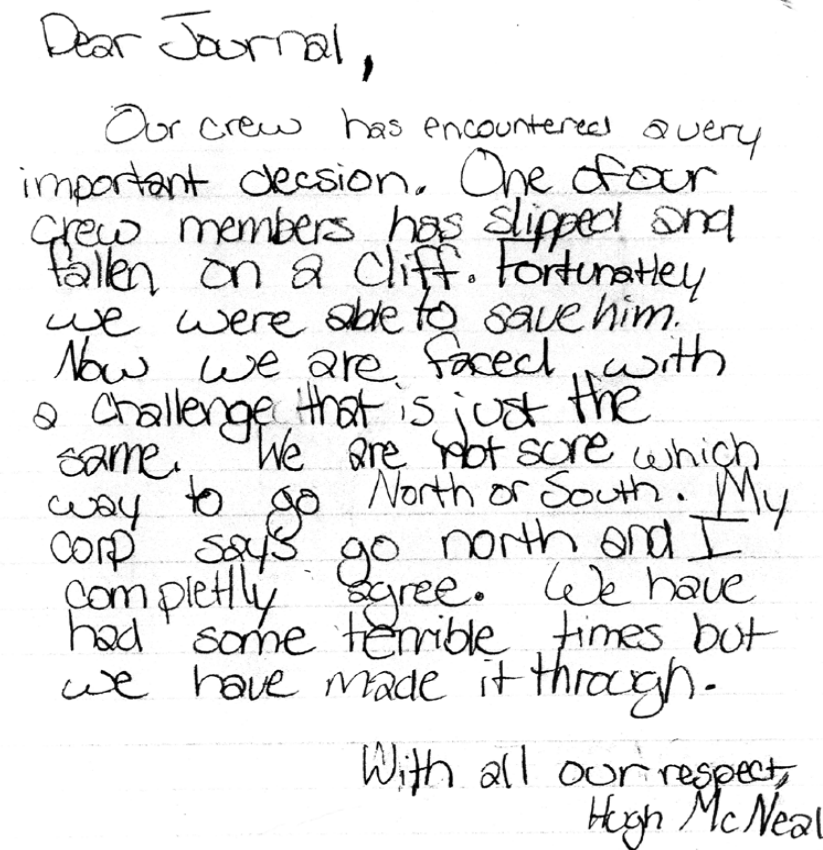 Dear Journal,
Our crew has encountered a very
important decsion. One of our
crew members has slipped and
fallen on a cliff. Fortunatley
we were able to save him.
Now we are faced with
a challenge that is just the
same. We are not sure which
way to go North or South. My
corp says go north and I
completlly agree. We have
had some terrible times but
we have made it through.
With all our respect,
Hugh McNeal